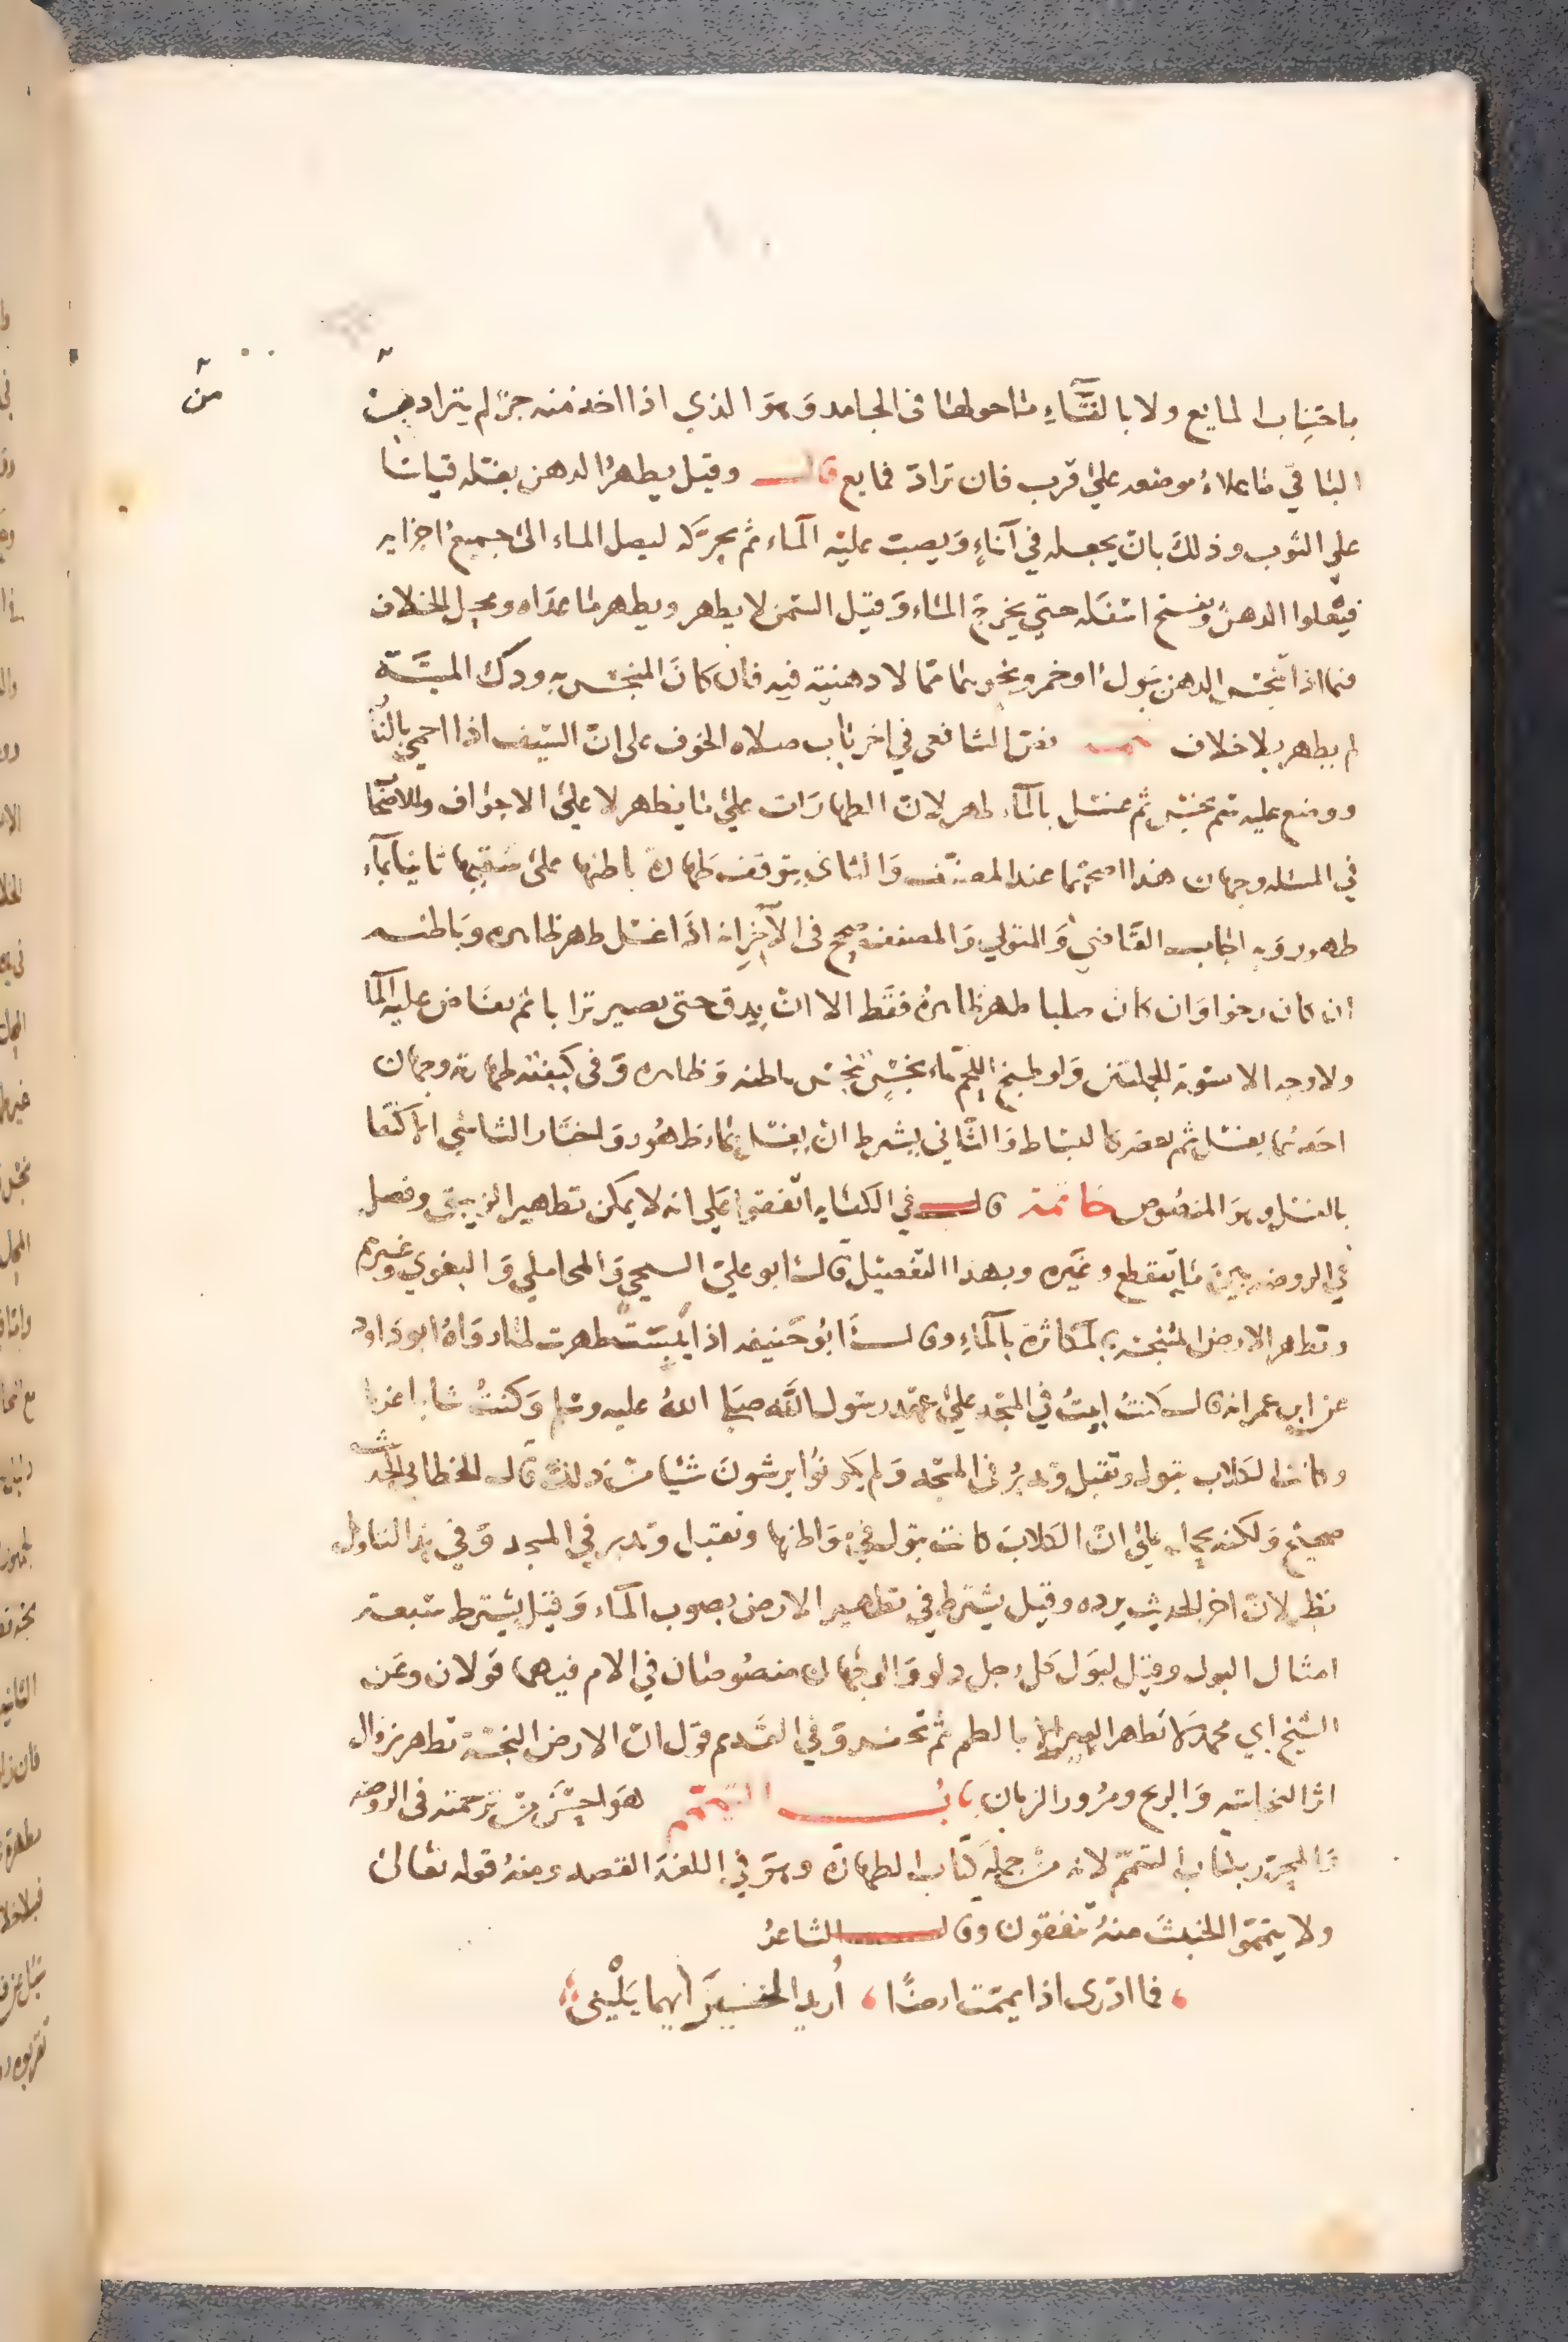 باجتناب المايع ولا بالقاء ما حولها في الجامد وهو الذي اذا اخذ منه جز لم يتراد من
الباقي ما يملاء موضعه علي قرب فان تراد فمايع قال وقيل يطهر الدهن بغسله قياسا
علي الثوب وذلك بان يجعله في آناء ويصب عليه الماء ثم يحركه ليصل الماء الى جميع اجزايه
فيعلوا الدهن ويفتح اسفله حتي يخرج الماء وقيل السمن لا يطهر ويطهر ما عداه ومحل الخلاف
فيما اذا تنجس الدهن ببول او خمر ونحوهما مما لا دهنية فيه فان كان المنجس به ودك الميتة
لم يطهر بلا خلاف نص الشافعي في اخر باب صلاه الخوف على ان السيف اذا احمي بالنا
ووضع عليه سم نجس ثم غسل بالماء طهر لان الطهارات علي ما يظهر لا علي الاجواف وللاصحا
في المسئله وجهان هذا اصحهما عند المصنف والثاني يتوقف طهارة باطنها على سقيها ثانيا بماء
طهور وبه اجاب القاضي والمتولي والمصنف صحح في الآجر انه اذا غسل طهر ظاهره وباطنه
ان كان رخوا وان كان صلبا طهر ظاهره فقط الا ان يدق حتى يصير ترابا ثم يفاض عليه الما
ولاوجه الا سوية للجملتين ولو طبخ اللحم بماء نجس نجس باطنه وظاهره وفي كيفية طهارته وجهان
احدهما يغسل ثم يعصر كالبساط والثاني يشرط ان يغسل بماء طهور واختار الشاشي الاكتفا
بالغسل وهو المنصوص خاتمة قال في الكفايه اتفقوا على انه لا يمكن تطهير الزيبق وفصل
في الروضه بين ما يتقطع وغيره وبهذا التفصيل قال ابو علي السنجي والمحاملي والبغوي وغيرهم
وتطهر الارض المتنجسة بالمكاثرة بالماء وقال ابو حنيفه اذا يبست طهرت لما رواه ابو داود
عن ابن عمر انه قال كنت ابيت في المسجد علي عهد رسول الله صلى الله عليه وسلم وكنت شابا عزبا
وكانت الكلاب تبول وتقبل وتدبر في المسجد ولم يكونوا يرشون شيئا من ذلك قال الخطابي الحديث
صحيح ولكنه يحمل على ان الكلاب كانت تبول في مواطنها وتقبل وتدبر في المسجد وفي هذا التاويل
نظر لان اخر الحديث يرده وقيل يشترط في تطهير الارض بصوب الماء وقيل يشترط سبعة
امثال البول وقيل لبول كل رجل دلو والوجهان منصوصان في الام فيهما قولان وعن
الشيخ ابي محمد لا تطهر البير الا بالطم ثم تحفر وفي القديم قول ان الارض النجسة تطهر بزوال
اثر النجاسة والريح ومرور الزمان باب التيمم هو احسن من ترجمته في الروضه
والمحرر بكتاب التيمم لانه من جملة كتاب الطهارة وهو في اللغة القصد ومنه قوله تعالى
ولا تيمموا الخبيث منه تنفقون وقال الشاعر
فما ادرى اذا يممت ارضا ، أريد الخير ايهما يليني
من